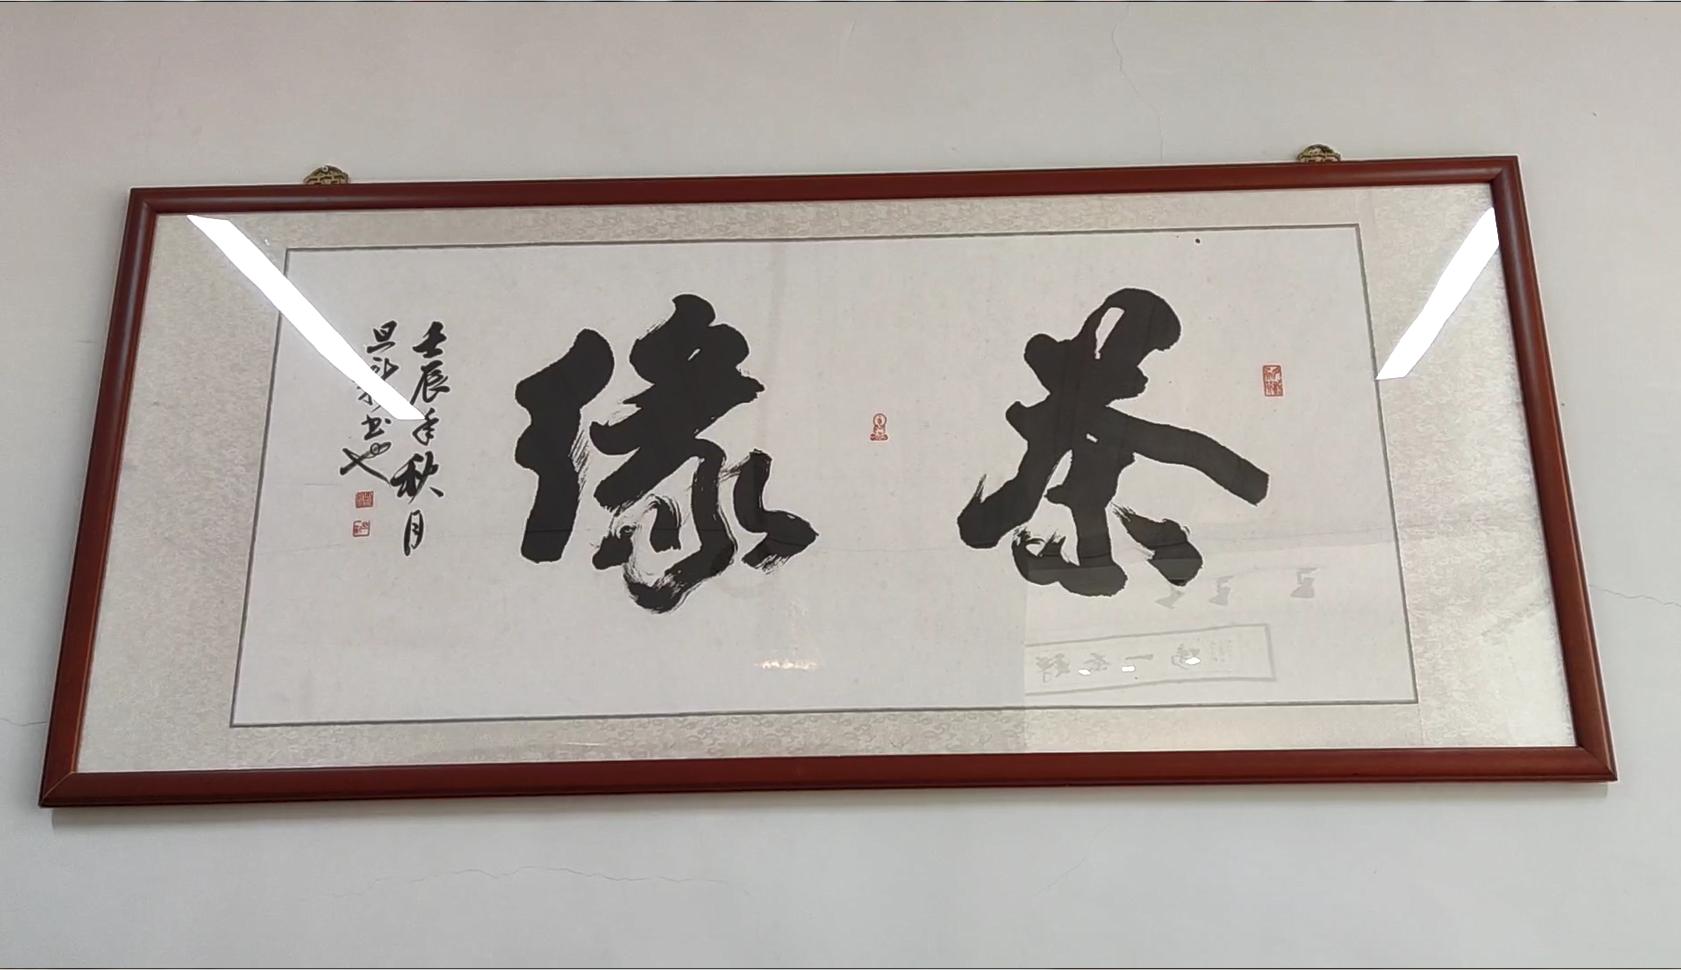 茶缘
壬辰年秋月
书也